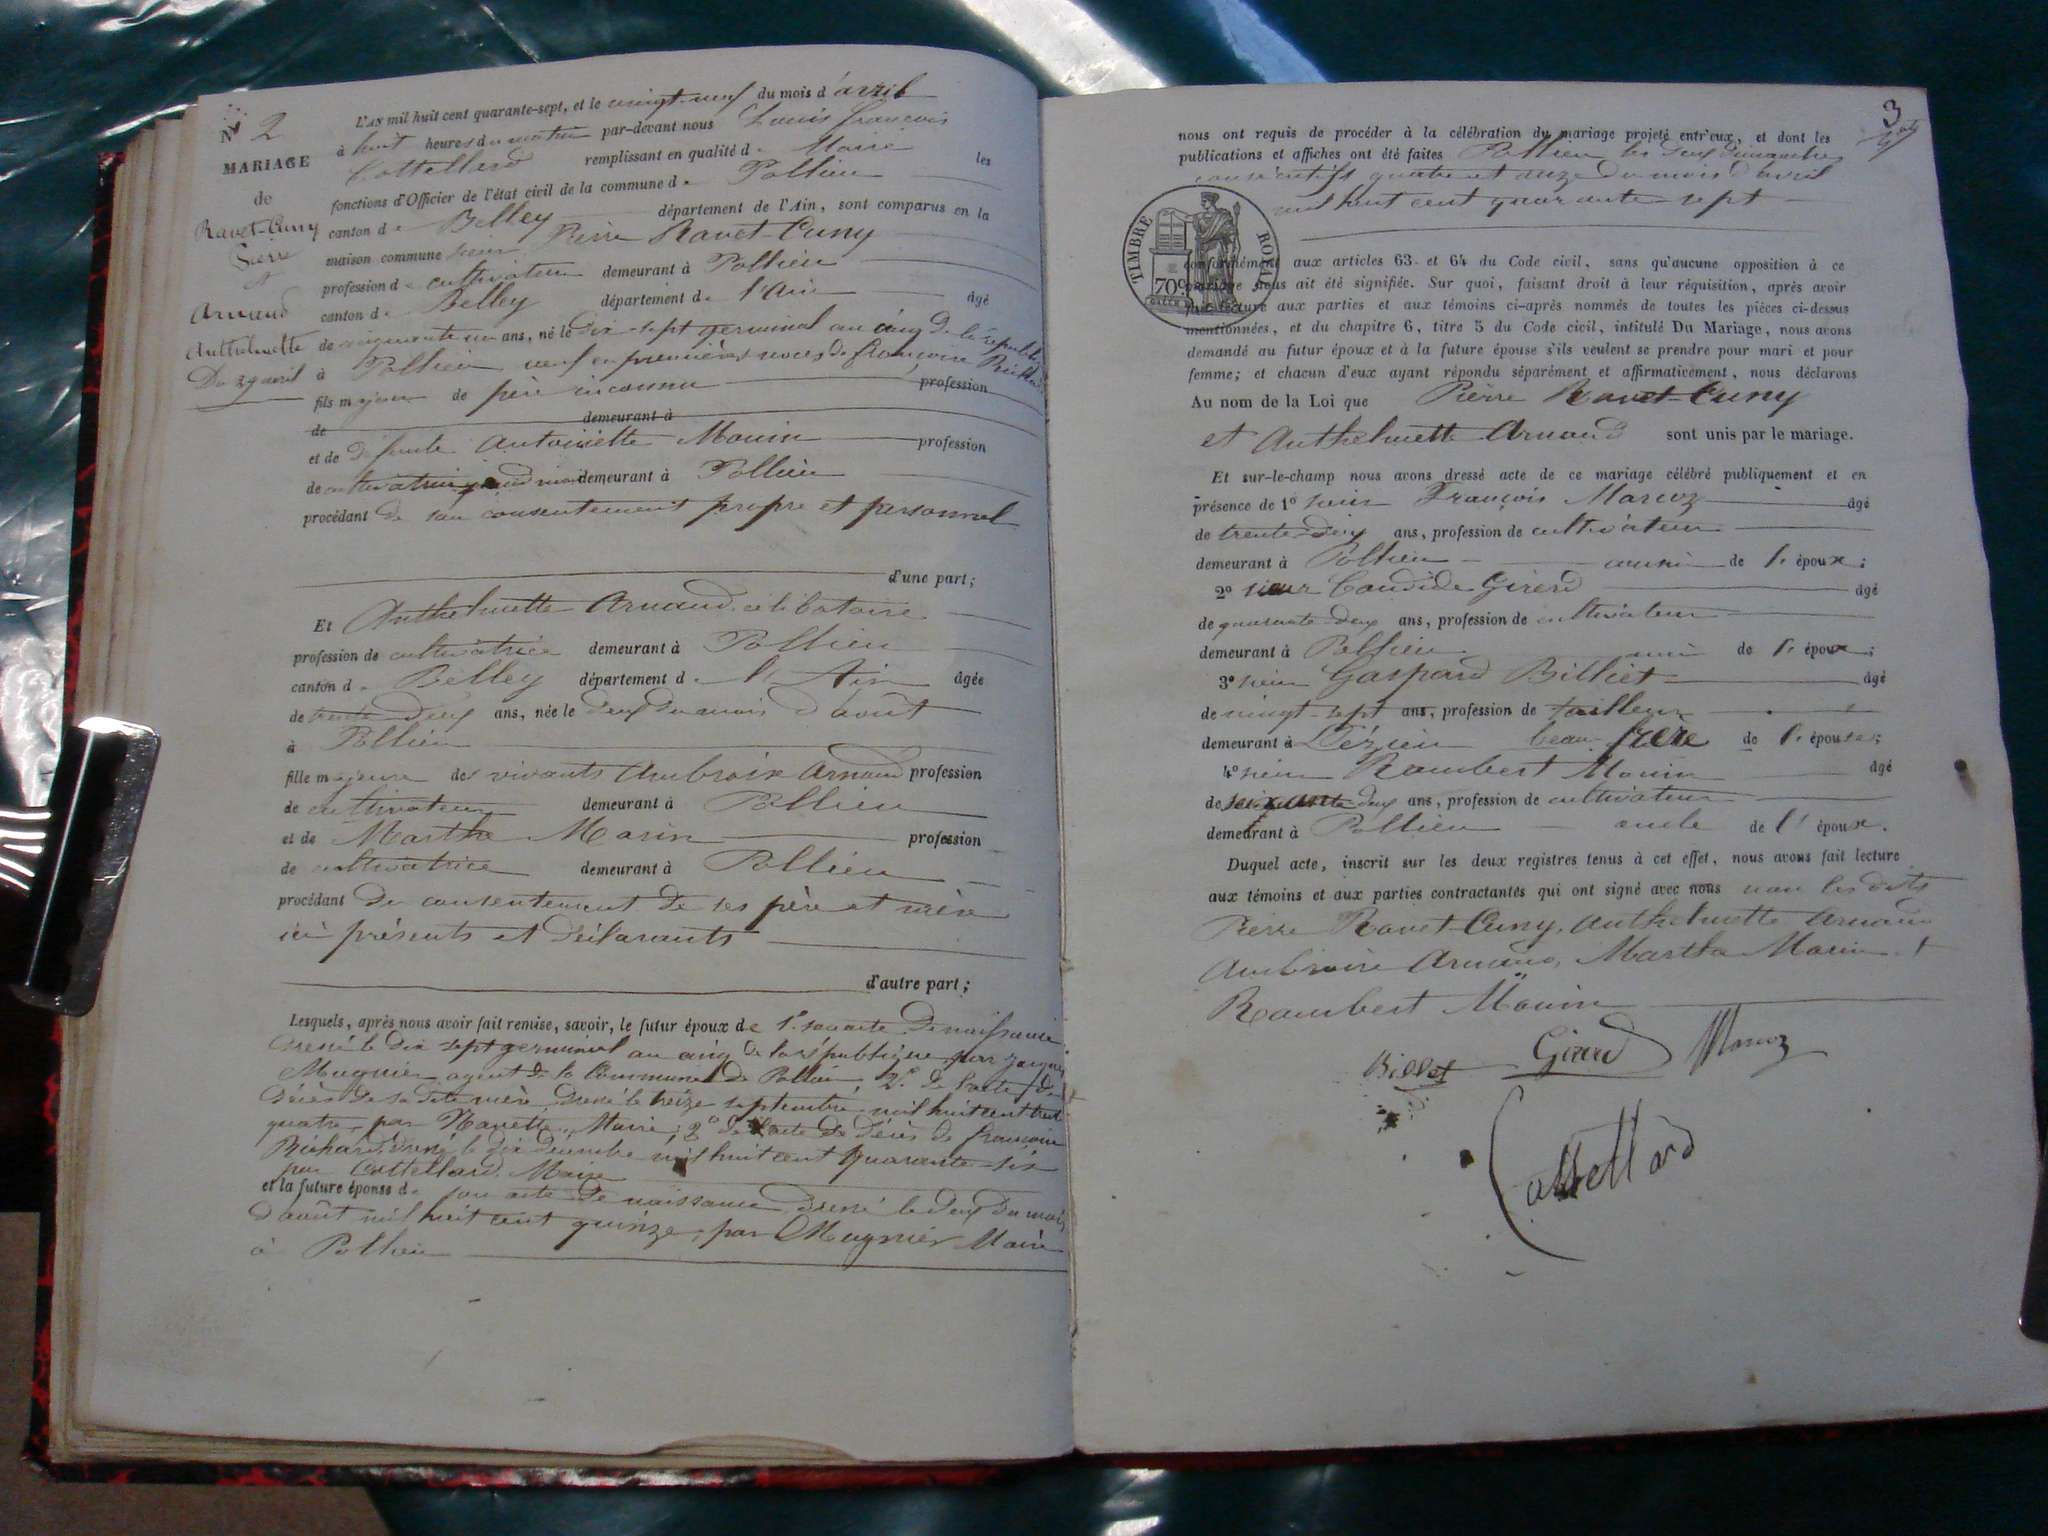 N° 2
MARIAGE
de
Ravet-Cuny
Pierre
&
Arnaud
Anthelmette
Du 29 avril
L'AN mil huit cent quarante-sept, et le vingt-neuf du mois d'avril
à huit heures du matin par-devant nous Louis François
Cottellard remplissant en qualité de Maire les
fonctions d'Officier de l'état civil de la commune de Pollieu
canton de Belley département de l'Ain, sont comparus en la
maison commune sieur Pierre Ravet-Cuny
profession de cultivateur demeurant à Pollieu
canton de Belley département de l'Ain âgé
de cinquante un ans, né le dix-sept germinal an cinq de la république
à Pollieu veuf en premières noces de françoise Richard
fils majeur de père inconnu profession
de demeurant à
et de défunte Antoinette Mouin profession
de cultivatrice demeurant à Pollieu
procédant de son consentement propre et personnel
d'une part;
Et Anthelmette Arnaud célibataire
profession de cultivatrice demeurant à Pollieu
canton de Belley département de l'Ain âgée
de trente deux ans, née le deux du mois d'août
à Pollieu
fille majeure des vivants Ambroise Arnaud profession
de cultivateur demeurant à Pollieu
et de Marthe Marin profession
de cultivatrice demeurant à Pollieu
procédant du consentement de ses père et mère
ici présents et déclarants
d'autre part;
Lesquels, après nous avoir fait remise, savoir, le futur époux de 1° son acte de naissance
dressé le dix sept germinal an cinq de la république par Jacques
Mugnier agent de la Commune de Pollieu, 2° de l'acte de
décès de sa dite mère dressé le treize septembre mil huit cent trente
quatre, par Navette, Maire; 3° de l'acte de décès de françoise
Richard dressé le dix décembre mil huit cent quarante-six
par Cottellard, Maire
et la future épouse de son acte de naissance dressé le deux du mois
d'août mil huit cent quinze, par Mugnier Maire
à Pollieu
3
nous ont requis de procéder à la célébration du mariage projeté entr'eux, et dont les
publications et affiches ont été faites Pollieu les deux dimanches
consécutifs quatre et onze du mois d'avril
mil huit cent quarante-sept
TIMBRE ROYAL
70c
conformément aux articles 63 et 64 du Code civil, sans qu'aucune opposition à ce
mariage nous ait été signifiée. Sur quoi, faisant droit à leur réquisition, après avoir
fait lecture aux parties et aux témoins ci-après nommés de toutes les pièces ci-dessus
mentionnées, et du chapitre 6, titre 5 du Code civil, intitulé Du Mariage, nous avons
demandé au futur époux et à la future épouse s'ils veulent se prendre pour mari et pour
femme; et chacun d'eux ayant répondu séparément et affirmativement, nous déclarons
Au nom de la Loi que Pierre Ravet-Cuny
et Anthelmette Arnaud sont unis par le mariage.
Et sur-le-champ nous avons dressé acte de ce mariage célébré publiquement et en
présence de 1° sieur François Marcoz âgé
de trente-deux ans, profession de cultivateur
demeurant à Pollieu ami de l'époux;
2° sieur Candide Girerd âgé
de quarante-deux ans, profession de cultivateur
demeurant à Pollieu ami de l'époux;
3° sieur Gaspard Billiet âgé
de vingt-sept ans, profession de tailleur
demeurant à Lézieu beau frère de l'épouse;
4° sieur Rambert Mouin âgé
de soixante deux ans, profession de cultivateur
demeurant à Pollieu oncle de l'époux.
Duquel acte, inscrit sur les deux registres tenus à cet effet, nous avons fait lecture
aux témoins et aux parties contractantes qui ont signé avec nous non les dits
Pierre Ravet-Cuny, Anthelmette Arnaud
Ambroise Arnaud, Martha Marin &
Rambert Mouin
Billiet Girerd Marcoz
Cottellard